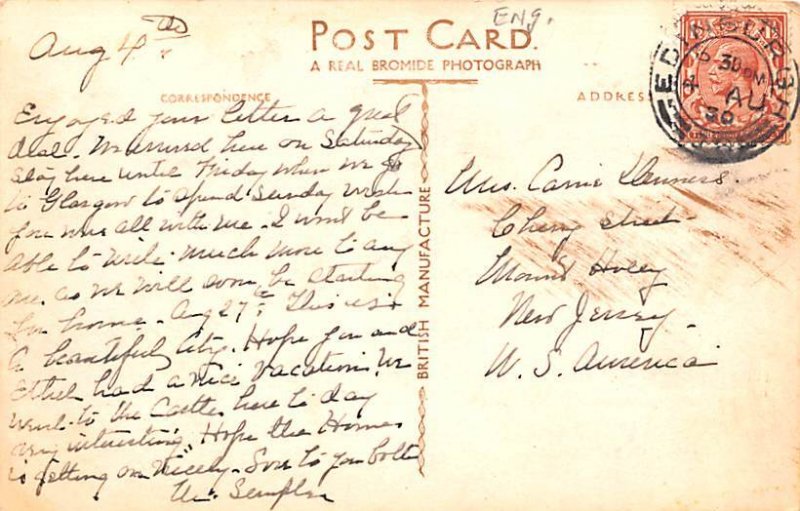 ENG.
POST CARD.
A REAL BROMIDE PHOTOGRAPH
CORRESPONDENCE
ADDRESS
BRITISH MANUFACTURE
EDINBURGH
30 PM
4 AU
Aug 4th
Enjoyed your letter a great
deal. We arrived here on Saturday
stay here until Friday when we go
to Glasgow to spend Sunday. Wish
you was all with me. I wont be
able to write much more to any
one as we will soon be starting
for home. Aug 27th. This is
a beautiful city. Hope you and
Ethel had a nice vacation. We
went to the Castle here to day
very interesting. Hope the Home
is getting on nicely. Love to you both
Mrs. Carrie
Cherry Street
Mount Holly
New Jersey.
U. S. America